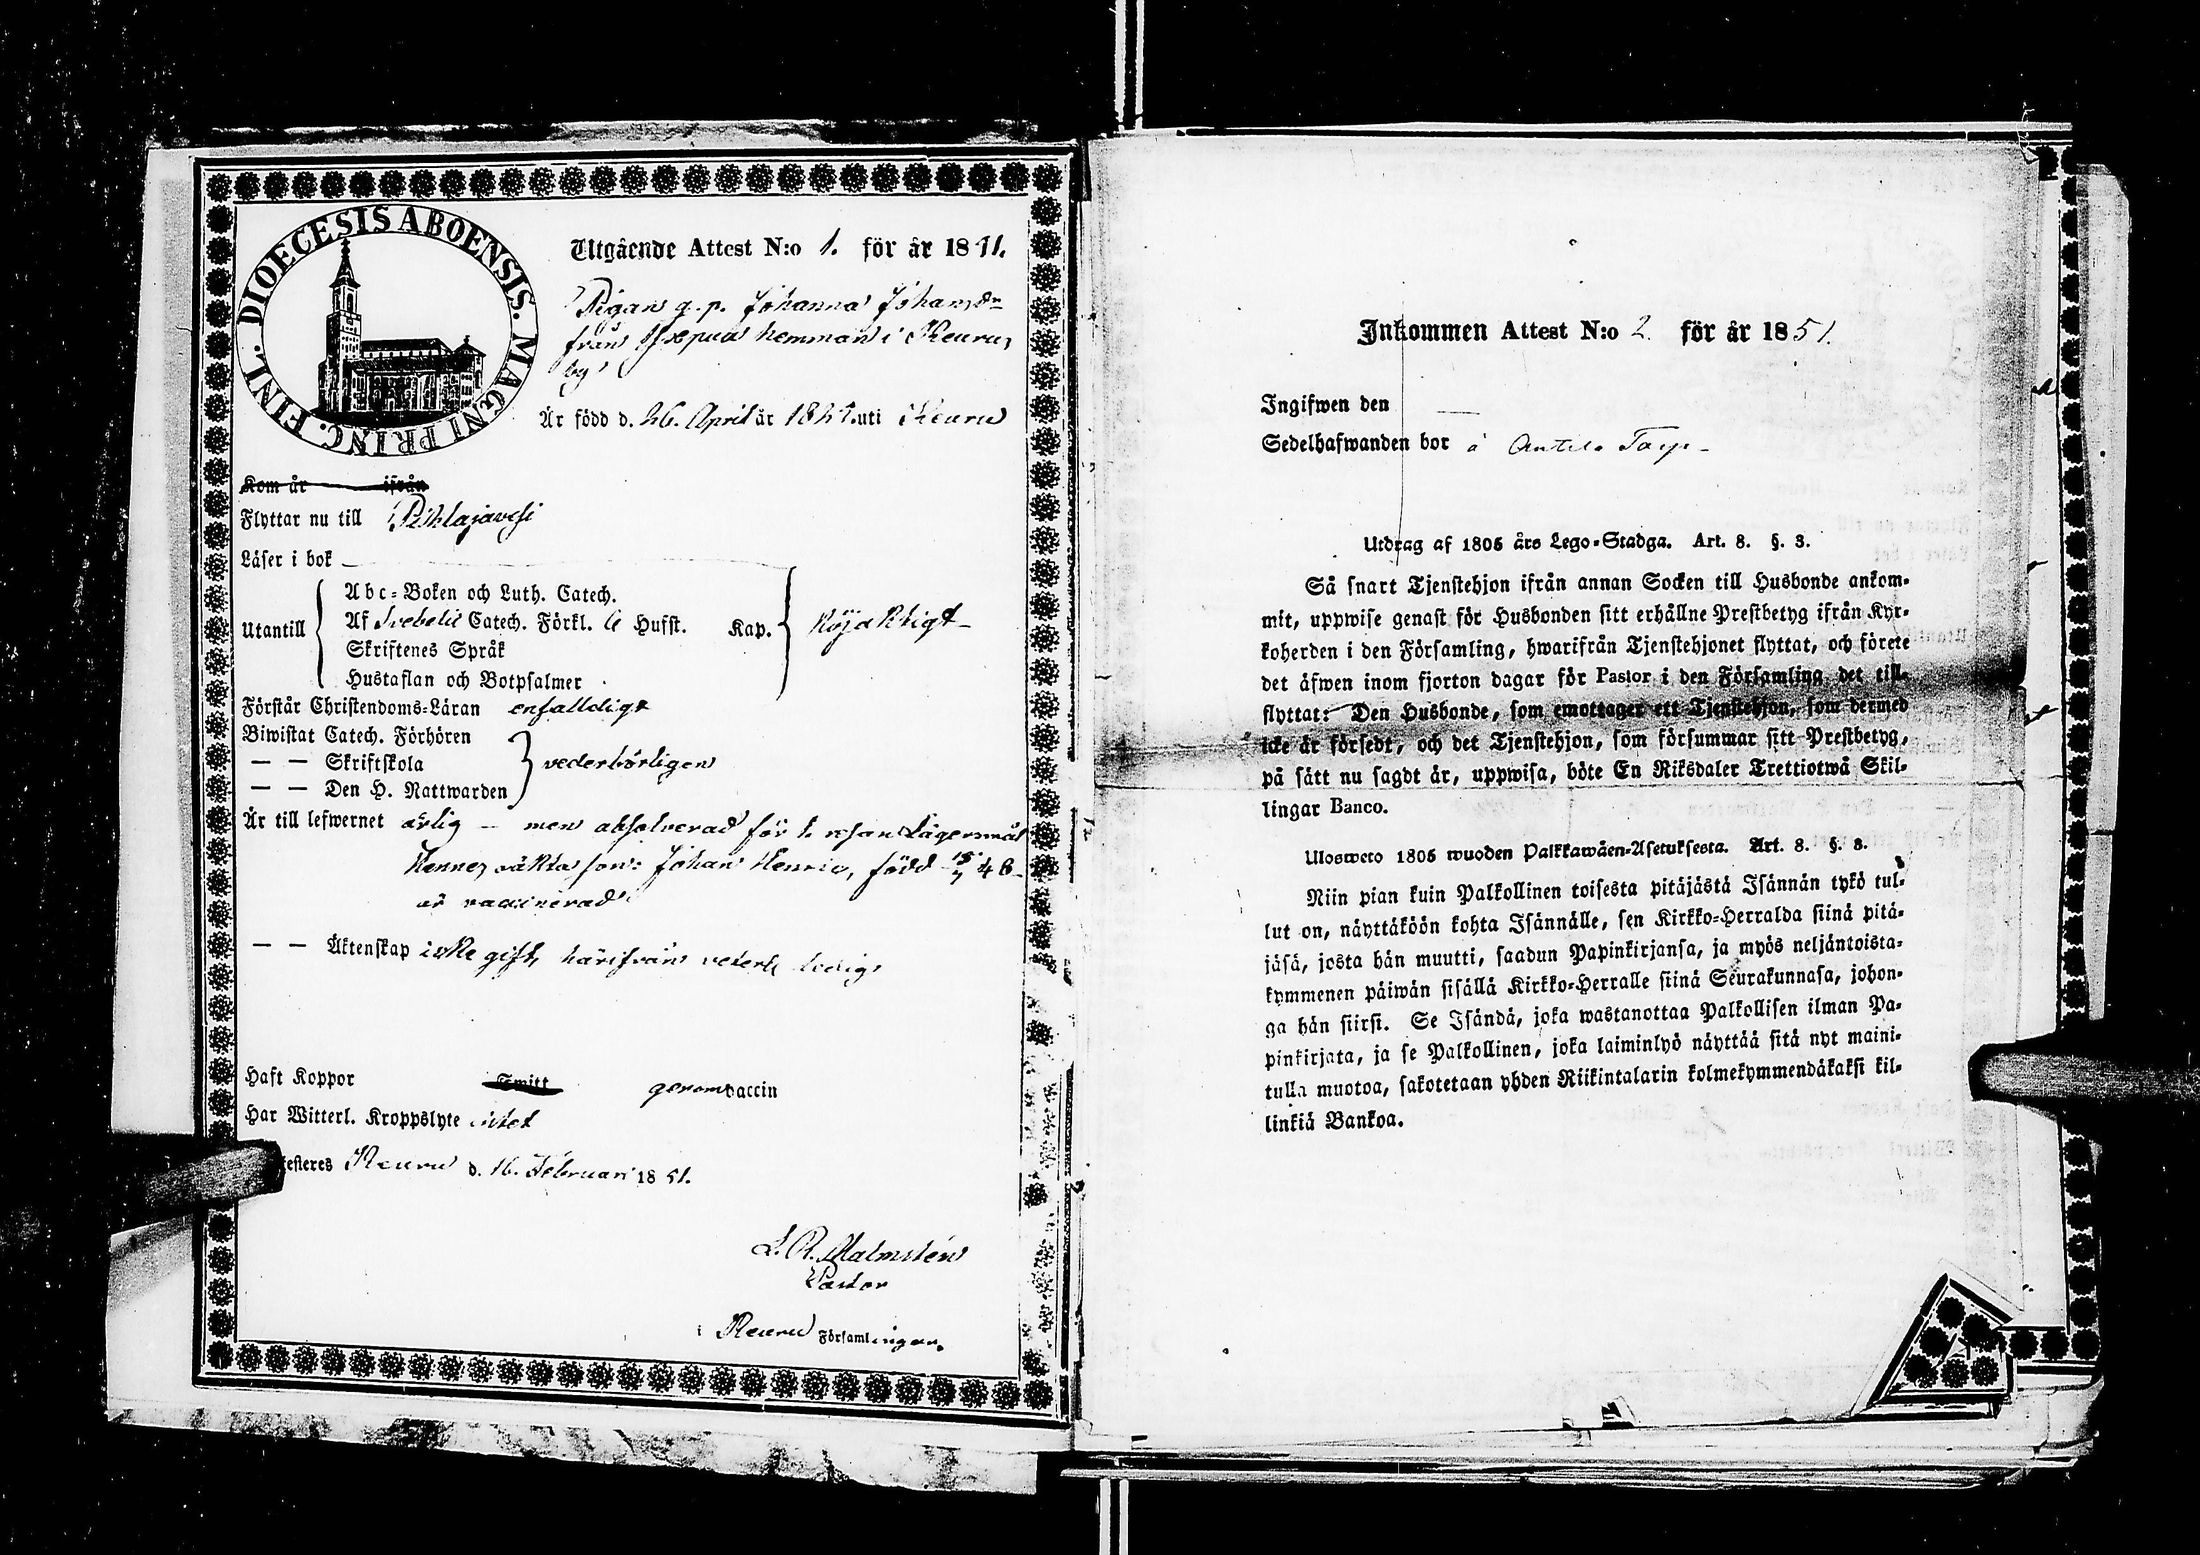 DIOECESIS ABOENSIS. MAGNI PRINC. FINL.
Utgående Attest N:o 1. för år 1851.
Pigan q. p. Johanna Johansdr
från hemman i Keuru
by
Är född d. 26. April år uti Keuru
Kom år ifrån
Flyttar nu till Pihlajavesi
Läser i bok
Utantill
Abc-Boken och Luth. Catech.
Af Svebelii Catech. Förkl. 6 Hufst. Kap. nöjaktigt
Skriftenes Språk
Hustaflan och Botpsalmer
Förstår Christendoms-Läran enfalldigt
Biwistat Catech. Förhören
— — Skriftskola vederbörligen
— — Den H. Nattwarden
Är till lefwernet ärlig – men absolverad för 1. resan Lägersmål
Hennes oäkta son: Johan Henric, född 15/7 46
är vaccinerad
— — Äktenskap icke gift, härifrån veterl. ledig
Haft Koppor Smitt genom vaccin
Har Witterl. Kroppslyte intet
testeres Keuru d. 16. Februari 1851.
L. R. Malmstén
Pastor
i Keuru Församlingen.
Inkommen Attest N:o 2. för år 1851.
Ingifwen den —
Sedelhafwanden bor å Antila Torp
Utdrag af 1805 års Lego-Stadga. Art. 8. §. 3.
Så snart Tjenstehjon ifrån annan Socken till Husbonde ankom-
mit, uppwise genast för Husbonden sitt erhållne Prestbetyg ifrån Kyr-
koherden i den Församling, hwarifrån Tjenstehjonet flyttat, och förete
det äfwen inom fjorton dagar för Pastor i den Församling det till-
flyttat: Den Husbonde, som emottager ett Tjenstehjon, som dermed
icke är försedt, och det Tjenstehjon, som försummar sitt Prestbetyg,
på sätt nu sagdt är, uppwisa, böte En Riksdaler Trettiotwå Skil-
lingar Banco.
Ulosweto 1805 wuoden Palkkawäen-Asetuksesta. Art. 8. §. 3.
Niin pian kuin Palkollinen toisesta pitäjästä Isännän tykö tul-
lut on, näyttäköön kohta Isännälle, sen Kirkko-Herralda siinä pitä-
jäsä, josta hän muutti, saadun Papinkirjansa, ja myös neljäntoista-
kymmenen päiwän sisällä Kirkko-Herralle siinä Seurakunnasa, johon-
ga hän siirsi. Se Isändä, joka wastanottaa Palkollisen ilman Pa-
pinkirjata, ja se Palkollinen, joka laiminlyö näyttää sitä nyt maini-
tulla muotoa, sakotetaan yhden Riikintalarin kolmekymmendäkaksi kil-
linkiä Bankoa.